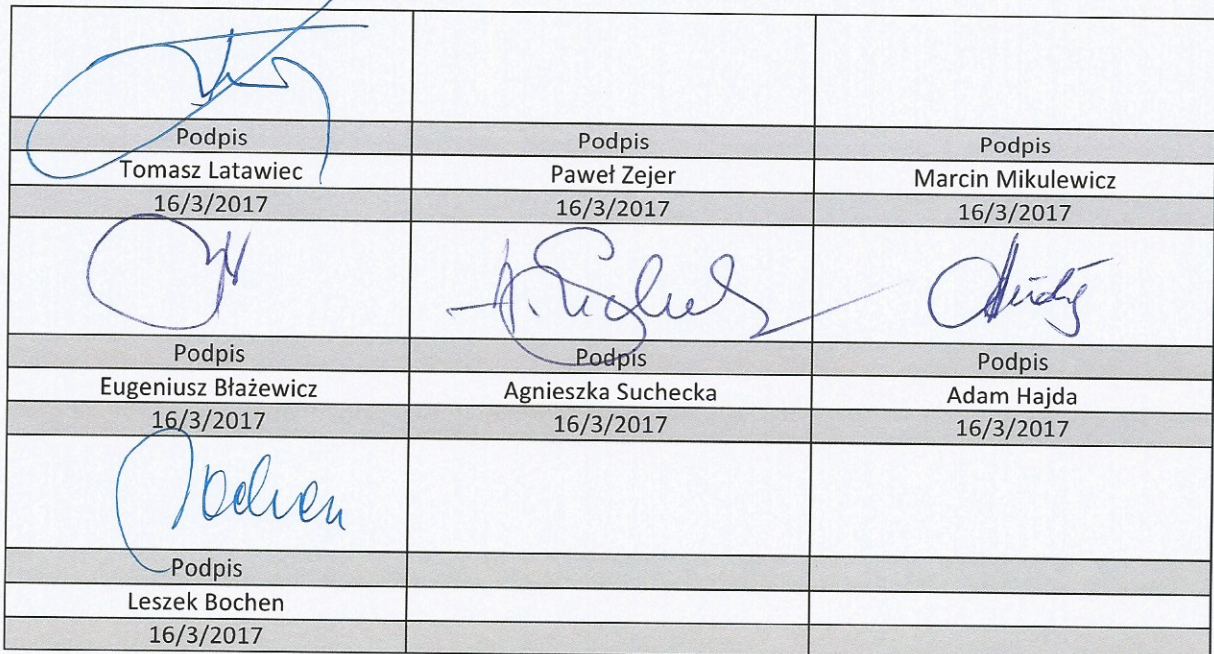 Podpis Podpis Podpis
Tomasz Latawiec Paweł Zejer Marcin Mikulewicz
16/3/2017 16/3/2017 16/3/2017
Podpis Podpis Podpis
Eugeniusz Błażewicz Agnieszka Suchecka Adam Hajda
16/3/2017 16/3/2017 16/3/2017
Bochen
Podpis
Leszek Bochen
16/3/2017